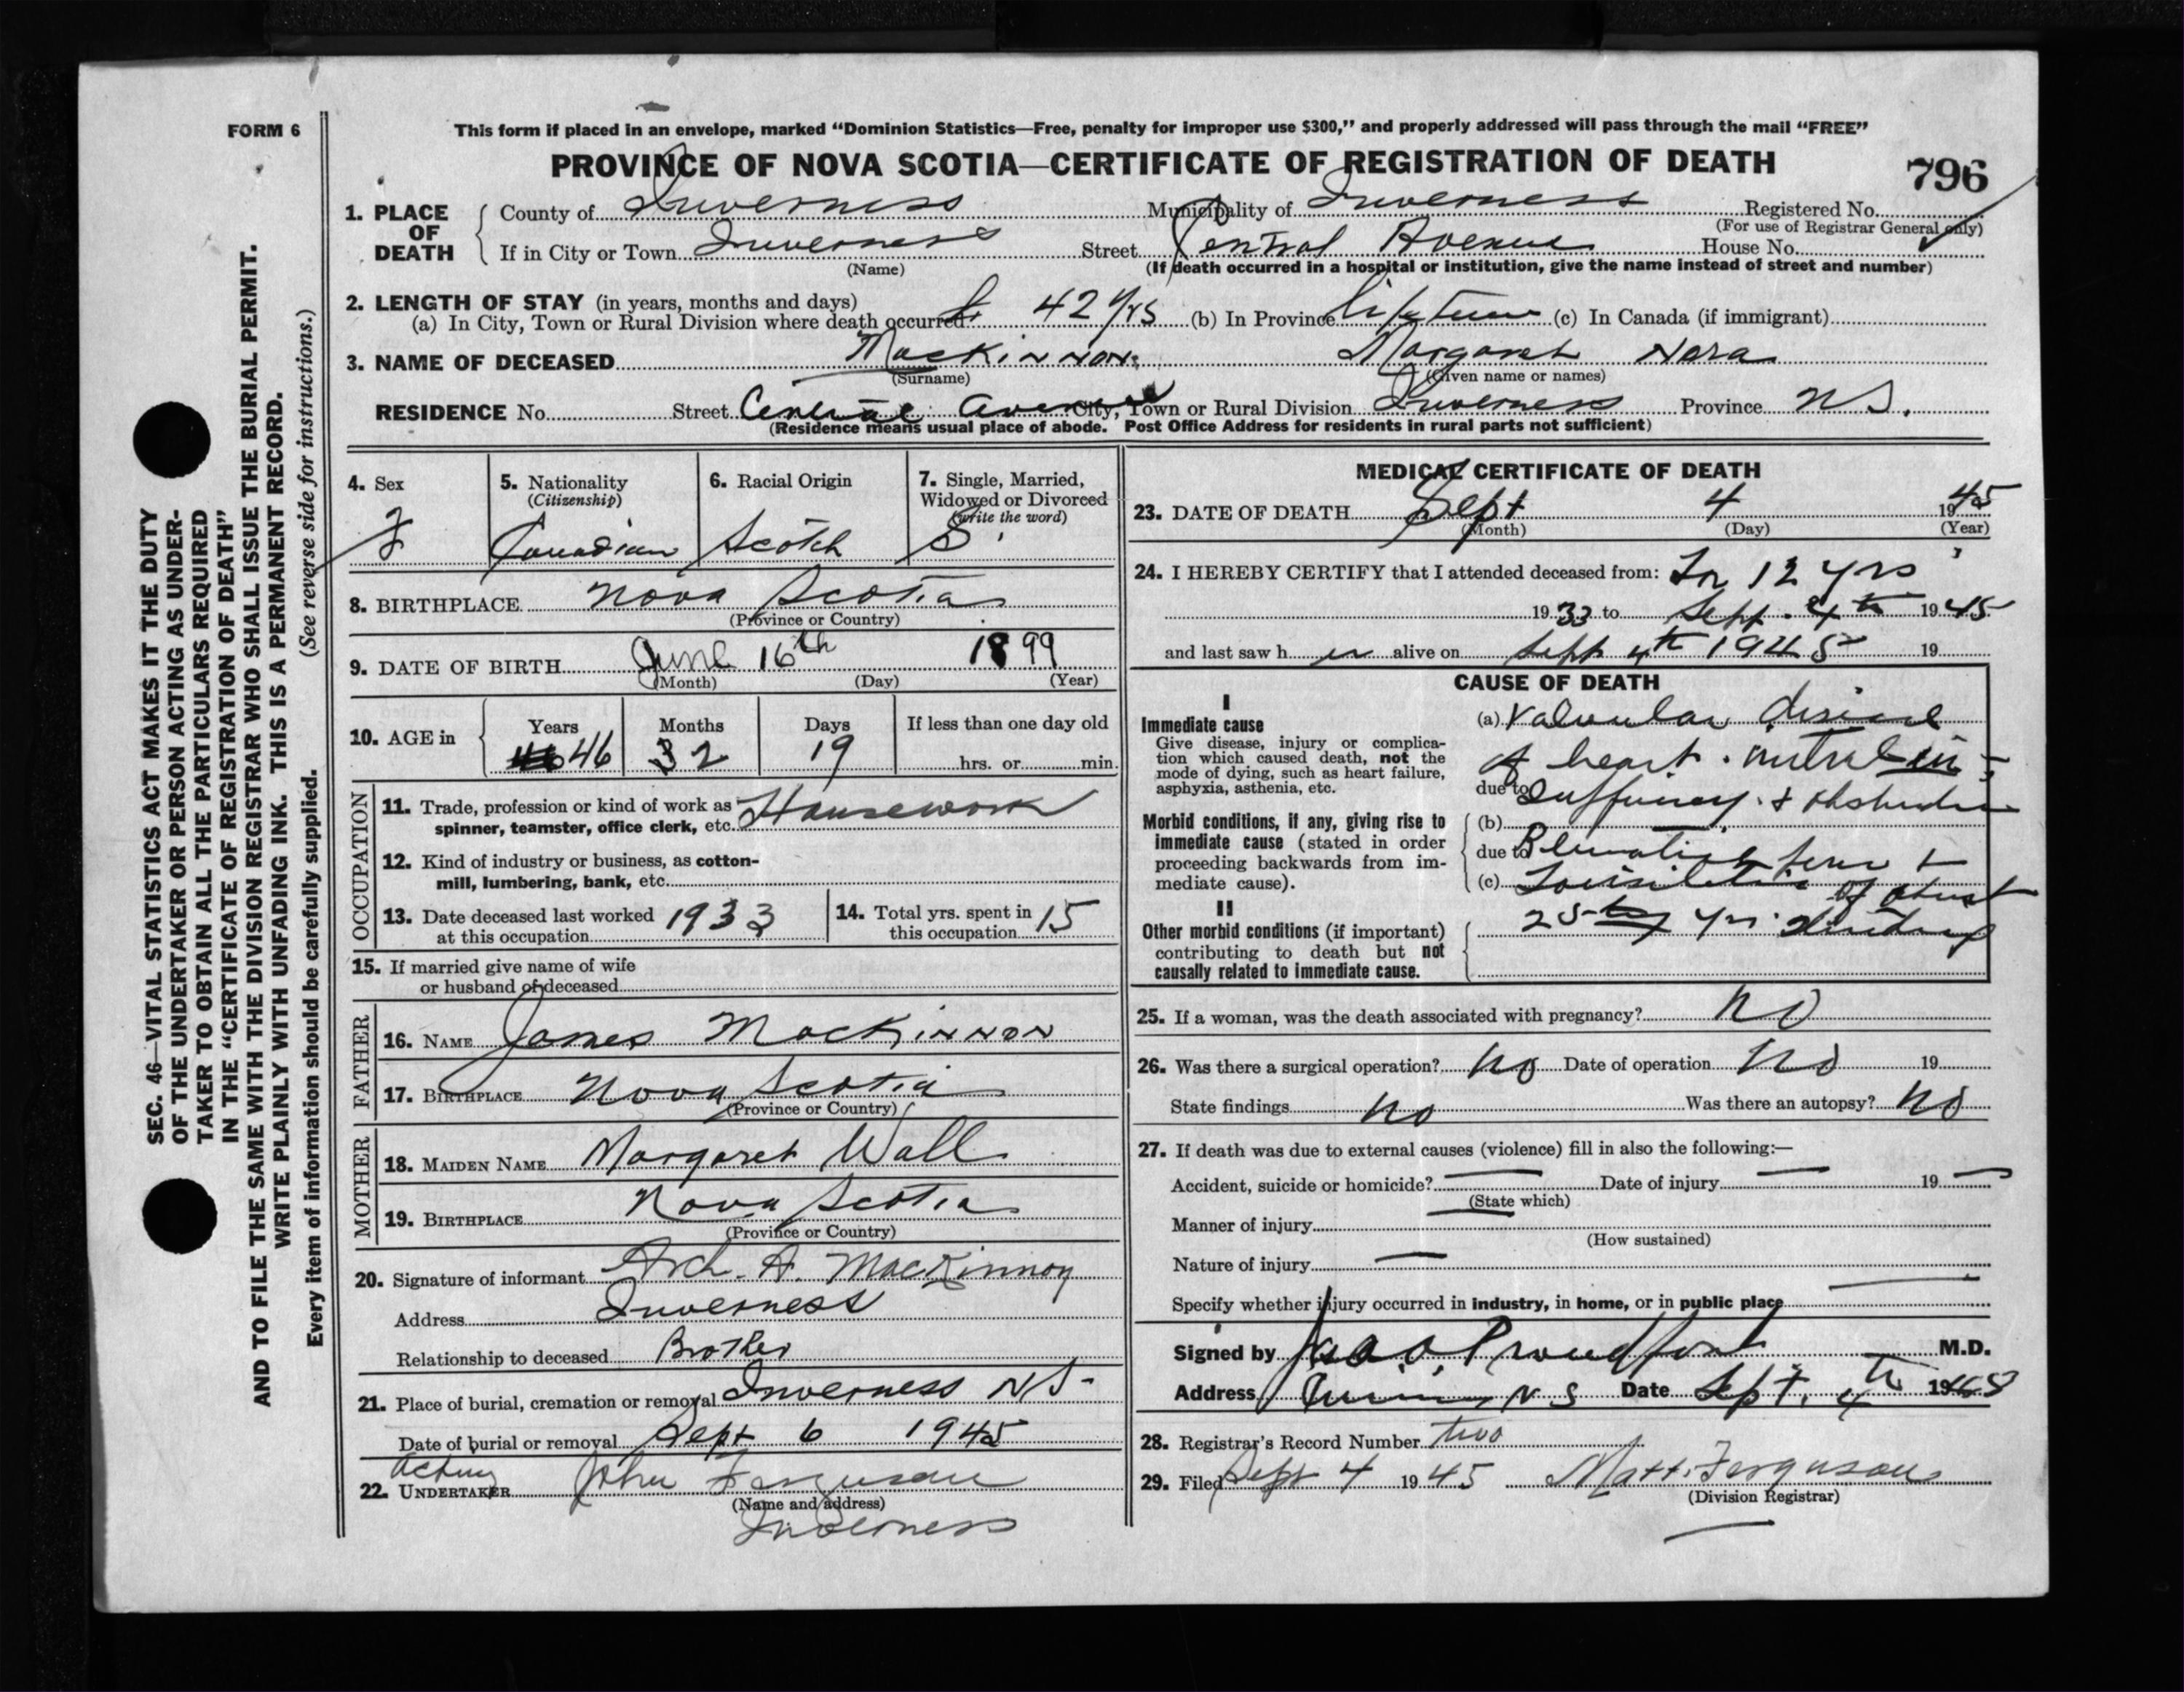 FORM 6
This form if placed in an envelope, marked “Dominion Statistics—Free, penalty for improper use $300,” and properly addressed will pass through the mail “FREE”
PROVINCE OF NOVA SCOTIA—CERTIFICATE OF REGISTRATION OF DEATH
796
SEC. 46—VITAL STATISTICS ACT MAKES IT THE DUTY
OF THE UNDERTAKER OR PERSON ACTING AS UNDER-
TAKER TO OBTAIN ALL THE PARTICULARS REQUIRED
IN THE “CERTIFICATE OF REGISTRATION OF DEATH”
AND TO FILE THE SAME WITH THE DIVISION REGISTRAR WHO SHALL ISSUE THE BURIAL PERMIT.
WRITE PLAINLY WITH UNFADING INK. THIS IS A PERMANENT RECORD.
Every item of information should be carefully supplied. (See reverse side for instructions.)
1. PLACE OF DEATH
County of Inverness Municipality of Inverness Registered No.
(For use of Registrar General only)
If in City or Town Inverness Street Central Avenue House No.
(Name) (If death occurred in a hospital or institution, give the name instead of street and number)
2. LENGTH OF STAY (in years, months and days)
(a) In City, Town or Rural Division where death occurred 42 yrs (b) In Province lifetime (c) In Canada (if immigrant)
3. NAME OF DECEASED MacKinnon Margaret Nora
(Surname) (Given name or names)
RESIDENCE No. Street Central Avenue City, Town or Rural Division Inverness Province N.S.
(Residence means usual place of abode. Post Office Address for residents in rural parts not sufficient)
4. Sex
F
5. Nationality
(Citizenship)
Canadian
6. Racial Origin
Scotch
7. Single, Married,
Widowed or Divorced
(write the word)
S.
8. BIRTHPLACE Nova Scotia
(Province or Country)
9. DATE OF BIRTH June 16th 1899
(Month) (Day) (Year)
10. AGE in
Years Months Days If less than one day old
46 2 19 hrs. or min.
OCCUPATION
11. Trade, profession or kind of work as
spinner, teamster, office clerk, etc. Housework
12. Kind of industry or business, as cotton-
mill, lumbering, bank, etc.
13. Date deceased last worked
at this occupation 1933
14. Total yrs. spent in
this occupation 15
15. If married give name of wife
or husband of deceased
FATHER
16. NAME James MacKinnon
17. BIRTHPLACE Nova Scotia
(Province or Country)
MOTHER
18. MAIDEN NAME Margaret Wall
19. BIRTHPLACE Nova Scotia
(Province or Country)
20. Signature of informant Arch. A. MacKinnon
Address Inverness
Relationship to deceased Brother
21. Place of burial, cremation or removal Inverness N.S.
Date of burial or removal Sept 6 1945
Acting
22. UNDERTAKER John Ferguson
(Name and address)
Inverness
MEDICAL CERTIFICATE OF DEATH
23. DATE OF DEATH Sept 4 1945
(Month) (Day) (Year)
24. I HEREBY CERTIFY that I attended deceased from: For 12 yrs
1933 to Sept. 4th 1945
and last saw her alive on Sept 4th 1945 19
CAUSE OF DEATH
I
Immediate cause
Give disease, injury or complica-
tion which caused death, not the
mode of dying, such as heart failure,
asphyxia, asthenia, etc.
(a) Valvular disease
of heart. mitral in-
due to sufficiency & obstruction
Morbid conditions, if any, giving rise to
immediate cause (stated in order
proceeding backwards from im-
mediate cause).
(b)
due to Rheumatic fever &
(c) Tonsilitis of about
II
Other morbid conditions (if important)
contributing to death but not
causally related to immediate cause.
25 yrs. standing
25. If a woman, was the death associated with pregnancy? no
26. Was there a surgical operation? no Date of operation no 19
State findings no Was there an autopsy? no
27. If death was due to external causes (violence) fill in also the following:—
Accident, suicide or homicide? — Date of injury — 19 —
(State which)
Manner of injury
(How sustained)
Nature of injury —
Specify whether injury occurred in industry, in home, or in public place —
Signed by Proudfoot M.D.
Address N S Date Sept. 4th 19
28. Registrar's Record Number two
29. Filed Sept 4 1945 Matt. Ferguson
(Division Registrar)